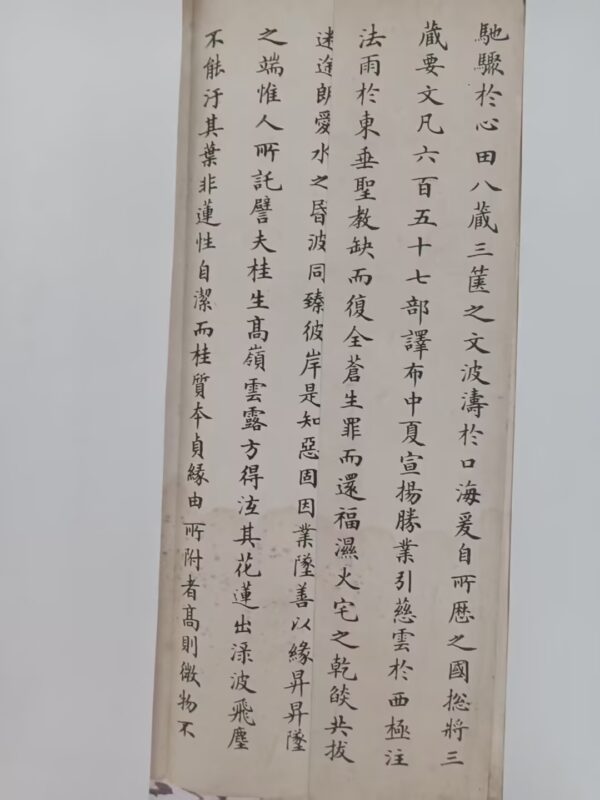 馳驟於心田八藏三篋之文波濤於口海爰自所歷之國揔將三
藏要文凡六百五十七部譯布中夏宣揚勝業引慈雲於西極注
法雨於東垂聖教缺而復全蒼生罪而還福濕火宅之乾燄共拔
迷途朗愛水之昏波同臻彼岸是知惡固因業墜善以緣昇昇墜
之端惟人所託譬夫桂生高嶺雲露方得泫其花蓮出淥波飛塵
不能汙其葉非蓮性自潔而桂質本貞緣由所附者高則微物不